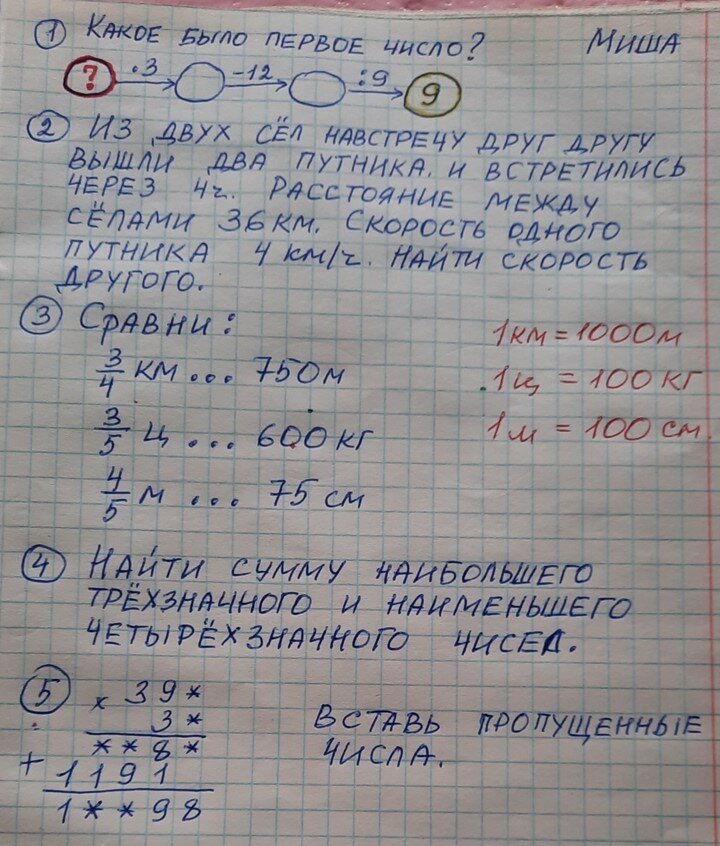 ① КАКОЕ БЫЛО ПЕРВОЕ ЧИСЛО? МИША
? ·3 -12 :9 9
② ИЗ ДВУХ СЁЛ НАВСТРЕЧУ ДРУГ ДРУГУ
ВЫШЛИ ДВА ПУТНИКА. И ВСТРЕТИЛИСЬ
ЧЕРЕЗ 4ч. РАССТОЯНИЕ МЕЖДУ
СЁЛАМИ 36 КМ. СКОРОСТЬ ОДНОГО
ПУТНИКА 4 КМ/Ч. НАЙТИ СКОРОСТЬ
ДРУГОГО.
③ СРАВНИ:
3/4 КМ ... 750м
3/5 Ц ... 600 кг
4/5 м ... 75 см
1км = 1000м
1ц = 100 кг
1м = 100 см.
④ НАЙТИ СУММУ НАИБОЛЬШЕГО
ТРЁХЗНАЧНОГО И НАИМЕНЬШЕГО
ЧЕТЫРЁХЗНАЧНОГО ЧИСЕЛ.
⑤ × 39*
3*
**8*
+ 1191
1**98
ВСТАВЬ ПРОПУЩЕННЫЕ
ЧИСЛА.